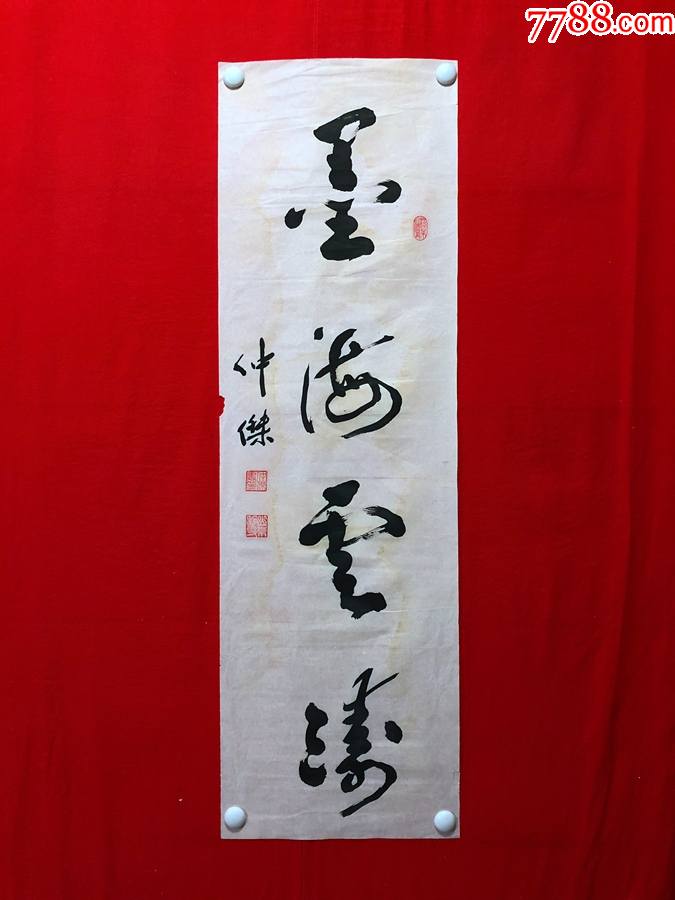 7788.com
墨海雲濤
仲傑